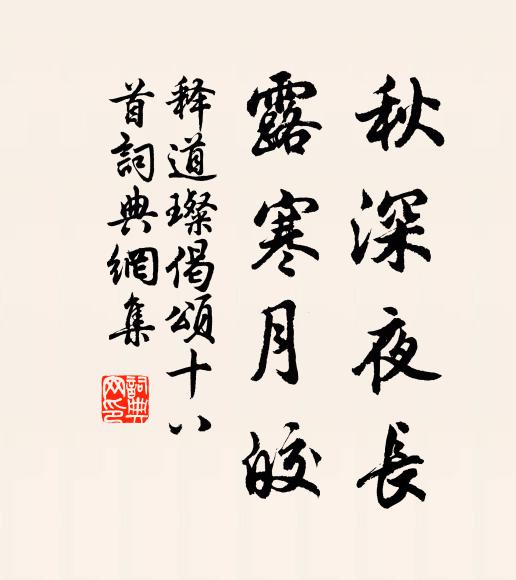 秋深夜長
露寒月皎
释道璨偈頌十八
首詞典網集
詞典
网印